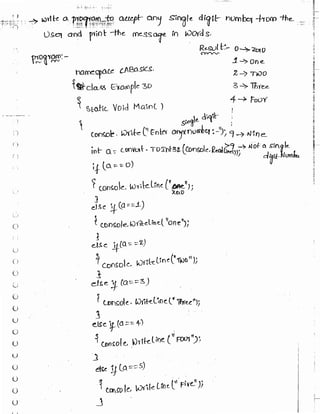 → write a program to accept any single digit number from the
User and print the message in words.
Result:- 0→zero
program:-
1→One
namespace cABasics.
2→TWO
{ class Example 3D
3→Three
{ static void Main( )
4→Four
{
single digit
Console.Write("Enter any number:-"); 9→Nine.
>9→Not a single
int a = convert.TOInt32(Console.ReadLine());
digit Number
if (a==0)
{ console.WriteLine("zero");
}
else if (a==1)
{ console.WriteLine("one");
}
else if (a==2)
{ console.WriteLine("TWO");
}
else if (a==3)
{ console.WriteLine("Three");
}
else if (a==4)
{ console.WriteLine("Four");
}
else if (a==5)
{ console.WriteLine("Five");
}